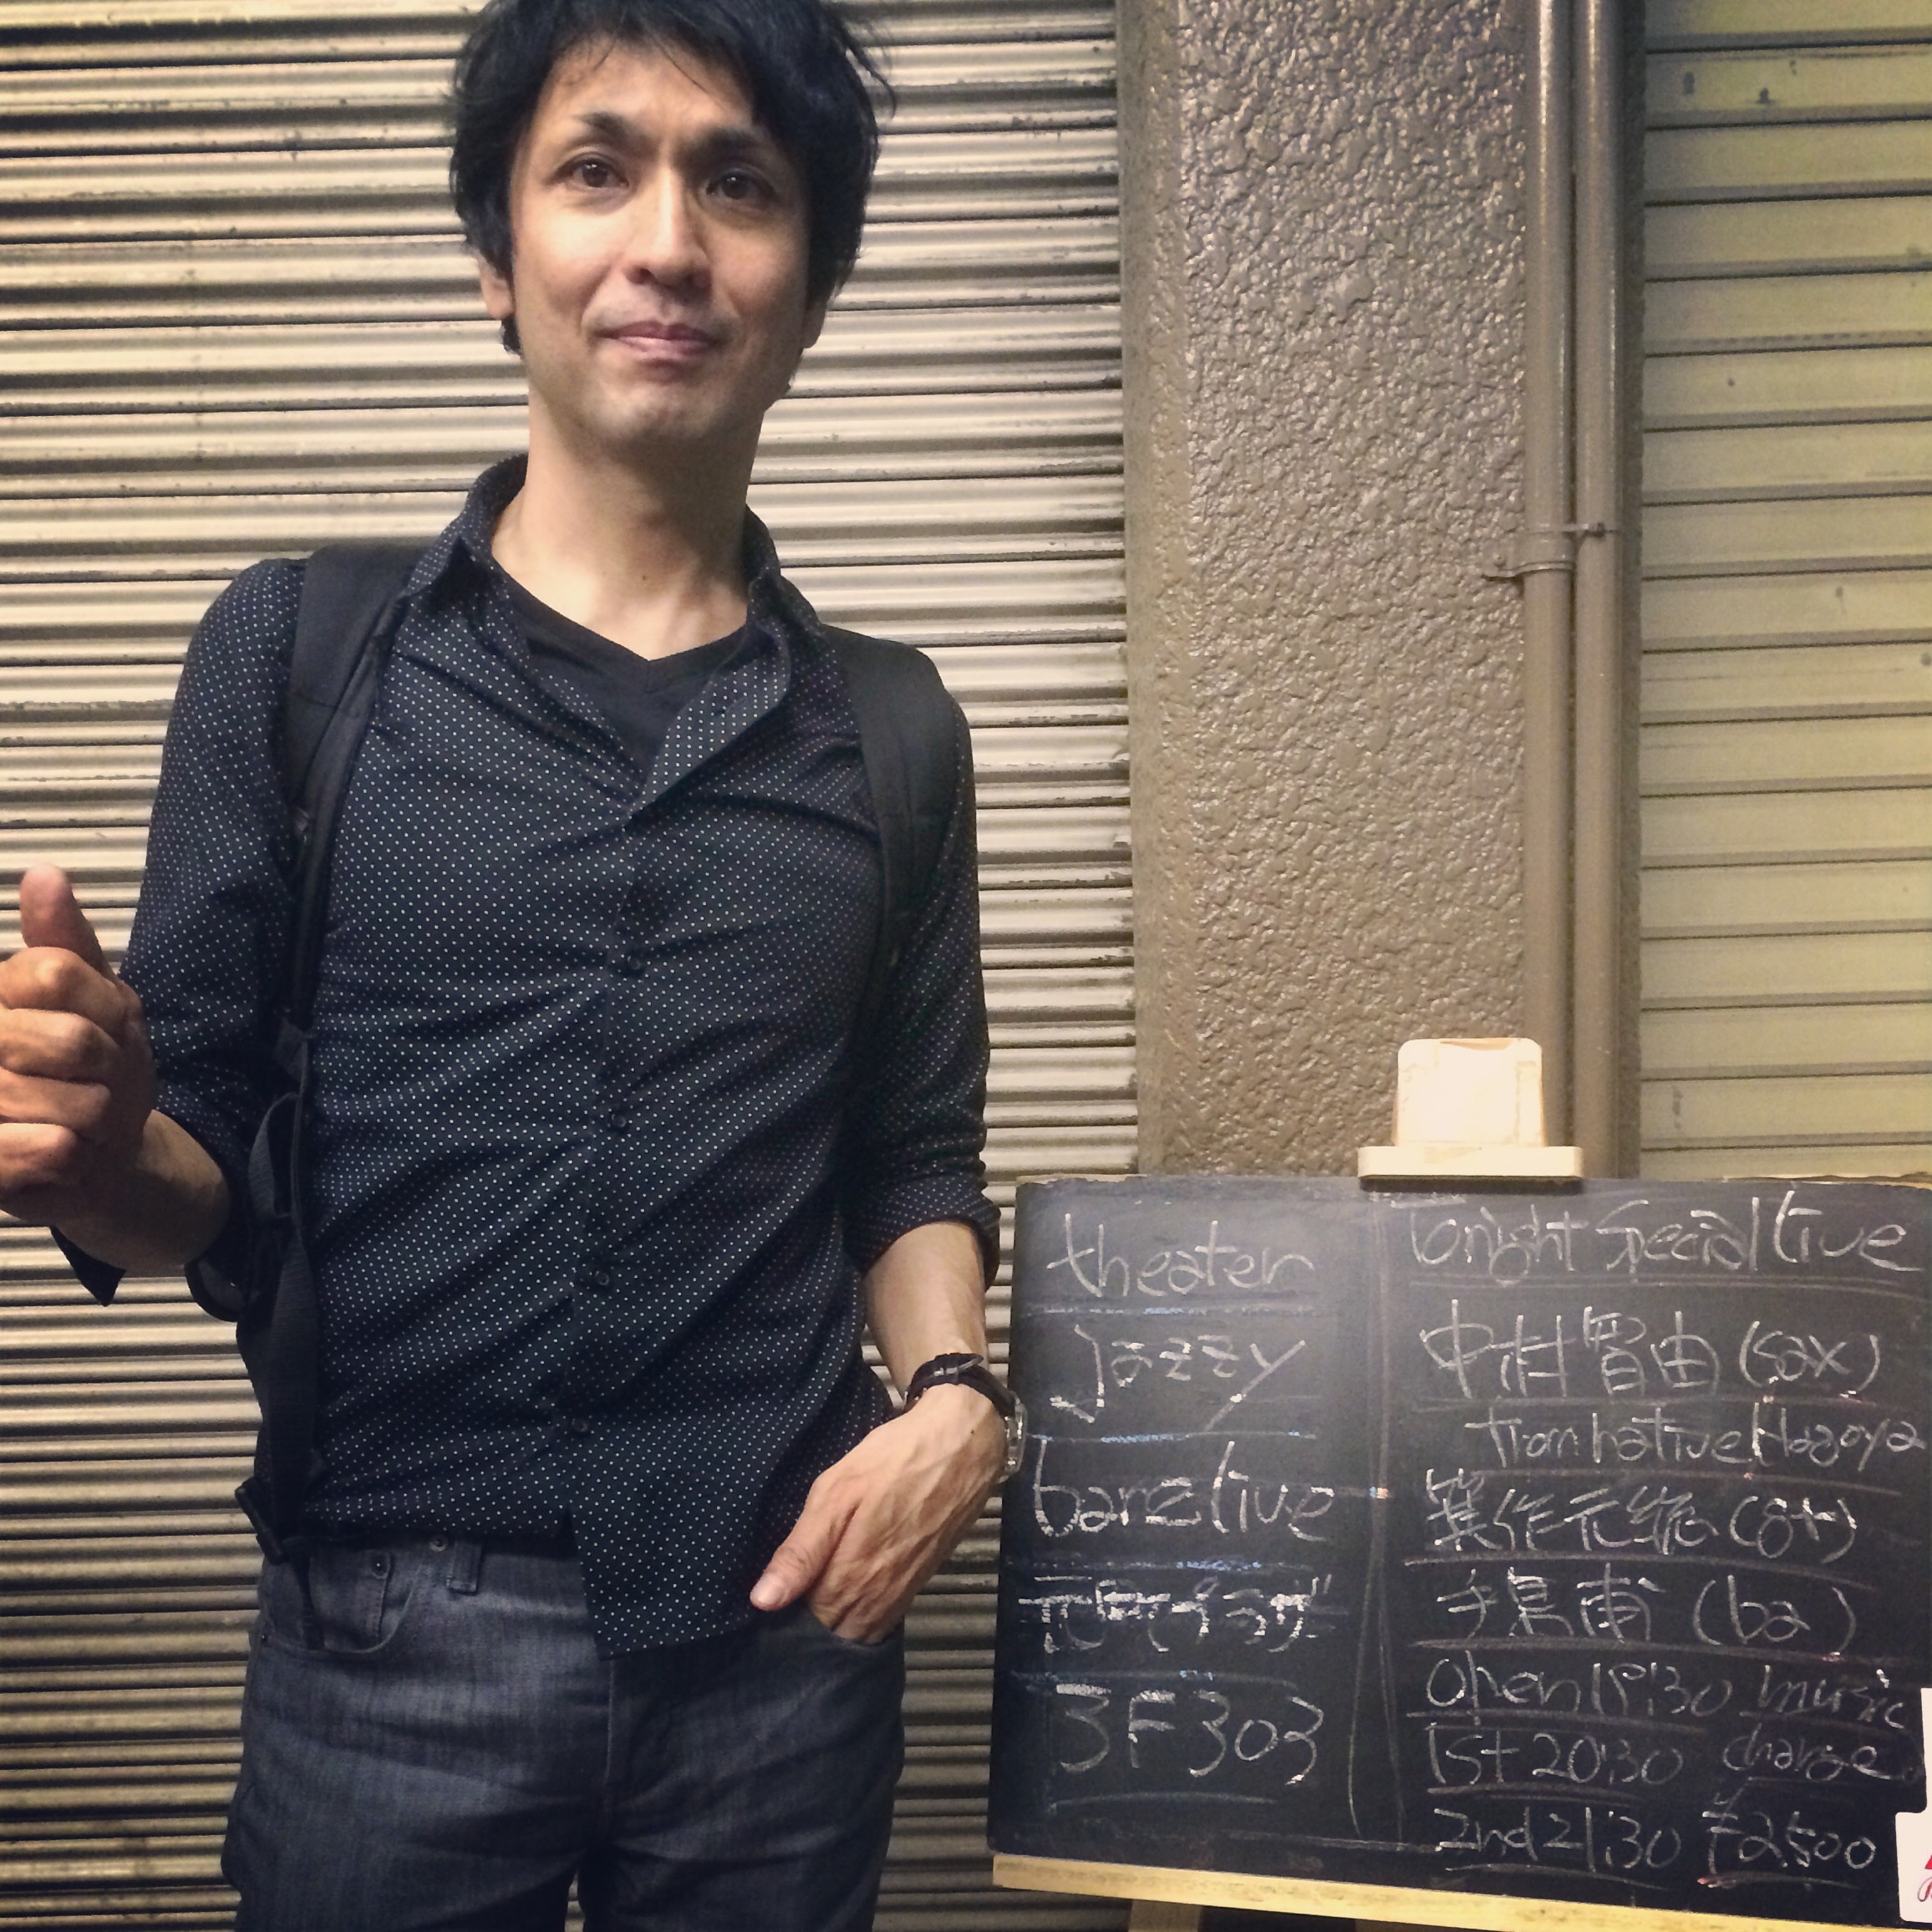 theater
Jazzy
bar&live
プラザ
3F303
Tonight Special live
中村智由 (sax)
from native Nagoya
箕作元総 (gt)
手島甫 (ba)
open 19:30 music
1st 20:30 charge
2nd 21:30 ¥2500